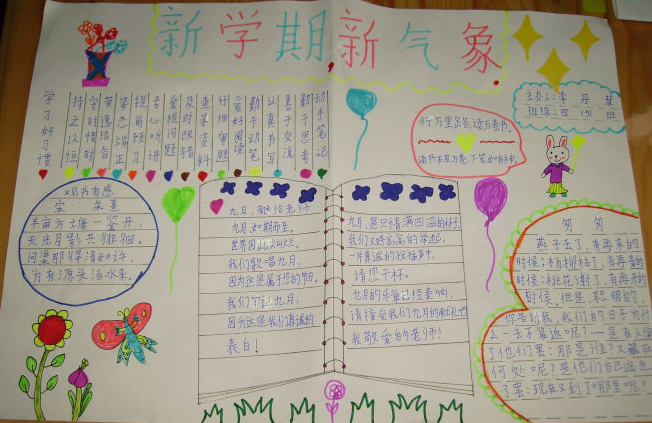 新学期新气象
学习好习惯
持之以恒
学时惜时
劳逸结合
姿态端正
提前预习
专心听讲
爱提问题
及时改错
查来资料
仔细审题
爱好阅读
勤于动笔
认真书写
善于交流
勤于思考
动手笔记
行万里路,读万卷书。
读书破万卷,下笔如有神。
主办人:李丹
班级:四(4)班
观书有感
宋:朱熹
半亩方塘一鉴开,
天光云影共徘徊。
问渠那得清如许,
为有源头活水来。
九月,献给老师
九月如期而至。
世界因此而灿烂。
我们歌唱九月,
因为这是属于您的节日。
我们牢记九月,
因为这是我们真诚的
表白!
九月,是只情满四溢的杯子,
我们又将高高的举起,
一片真诚的祝福声中,
请您干杯,
九月的乐章已经奏响,
请接受我们九月的献礼吧
我敬爱的老师!
匆匆
燕子去了,有再来的
时候;杨柳枯了,有再青的
时候;桃花谢了,有再开的
时候。但是,聪明的,
你告诉我,我们的日子为什
么一去不复返呢?—是有人偷
了他们罢:那是谁?又藏在
何处呢?是他们自己逃走
了罢:现在又到了哪里呢?